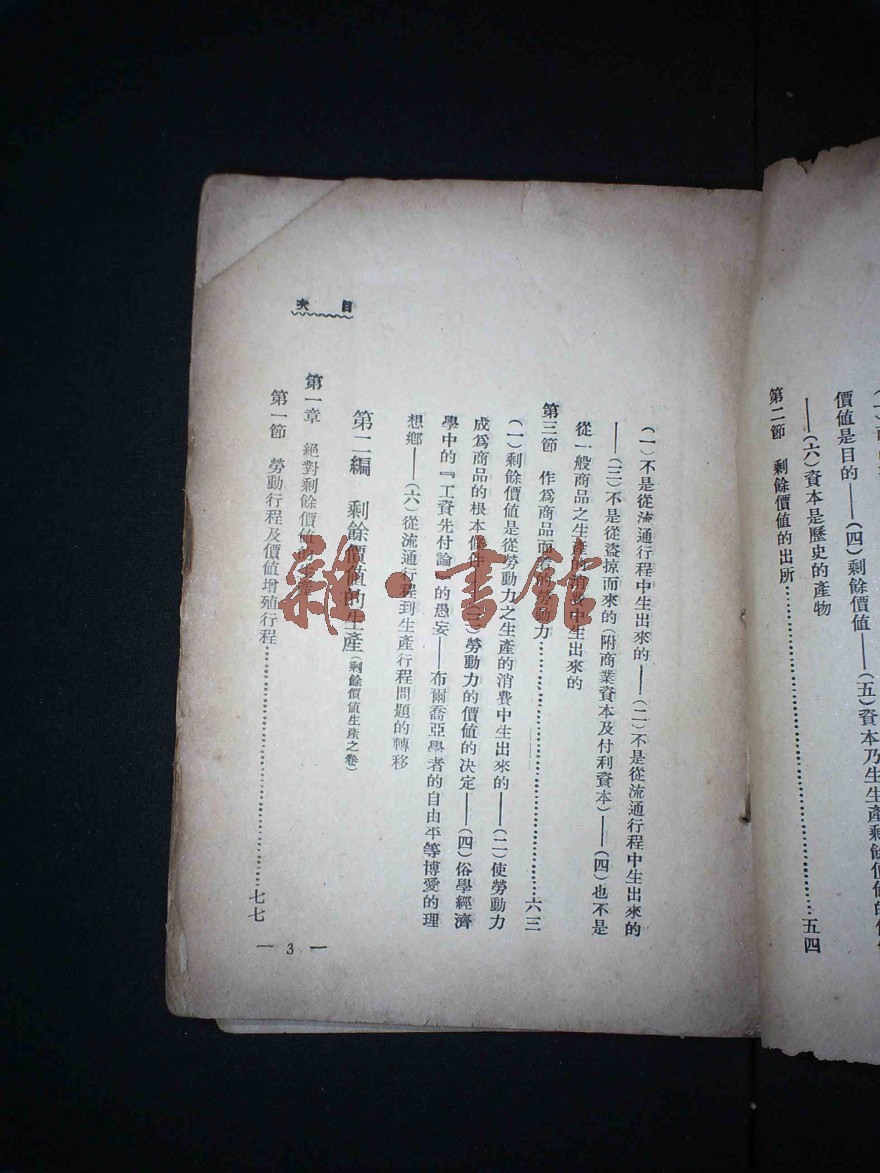 價值是目的——(四)剩餘價值——(五)資本乃生生產剩餘價值的
——(六)資本是歷史的產物
第二節 剩餘價值的出所……五四
目次
(一)不是從流通行程中生出來的——(二)不是從流通行程中生出來的
——(三)不是從盜掠而來的(附商業資本及付利資本)——(四)也不是
從一般商品之生產的消費中生出來的
第三節 作爲商品而看的勞動力……六三
(一)剩餘價值是從勞動力之生產的消費中生出來的——(二)使勞動力
成爲商品的根本條件——(三)勞動力的價值的決定——(四)俗學經濟
學中的『工資先付論』的愚妄——布爾喬亞學者的自由平等博愛的理
想鄉——(六)從流通行程到生產行程問題的轉移
第二編 剩餘價值的生產(剩餘價值生產之卷)
第一章 絕對剩餘價值的生產
第一節 勞動行程及價值增殖行程……七七
— 3 —
雜·書館